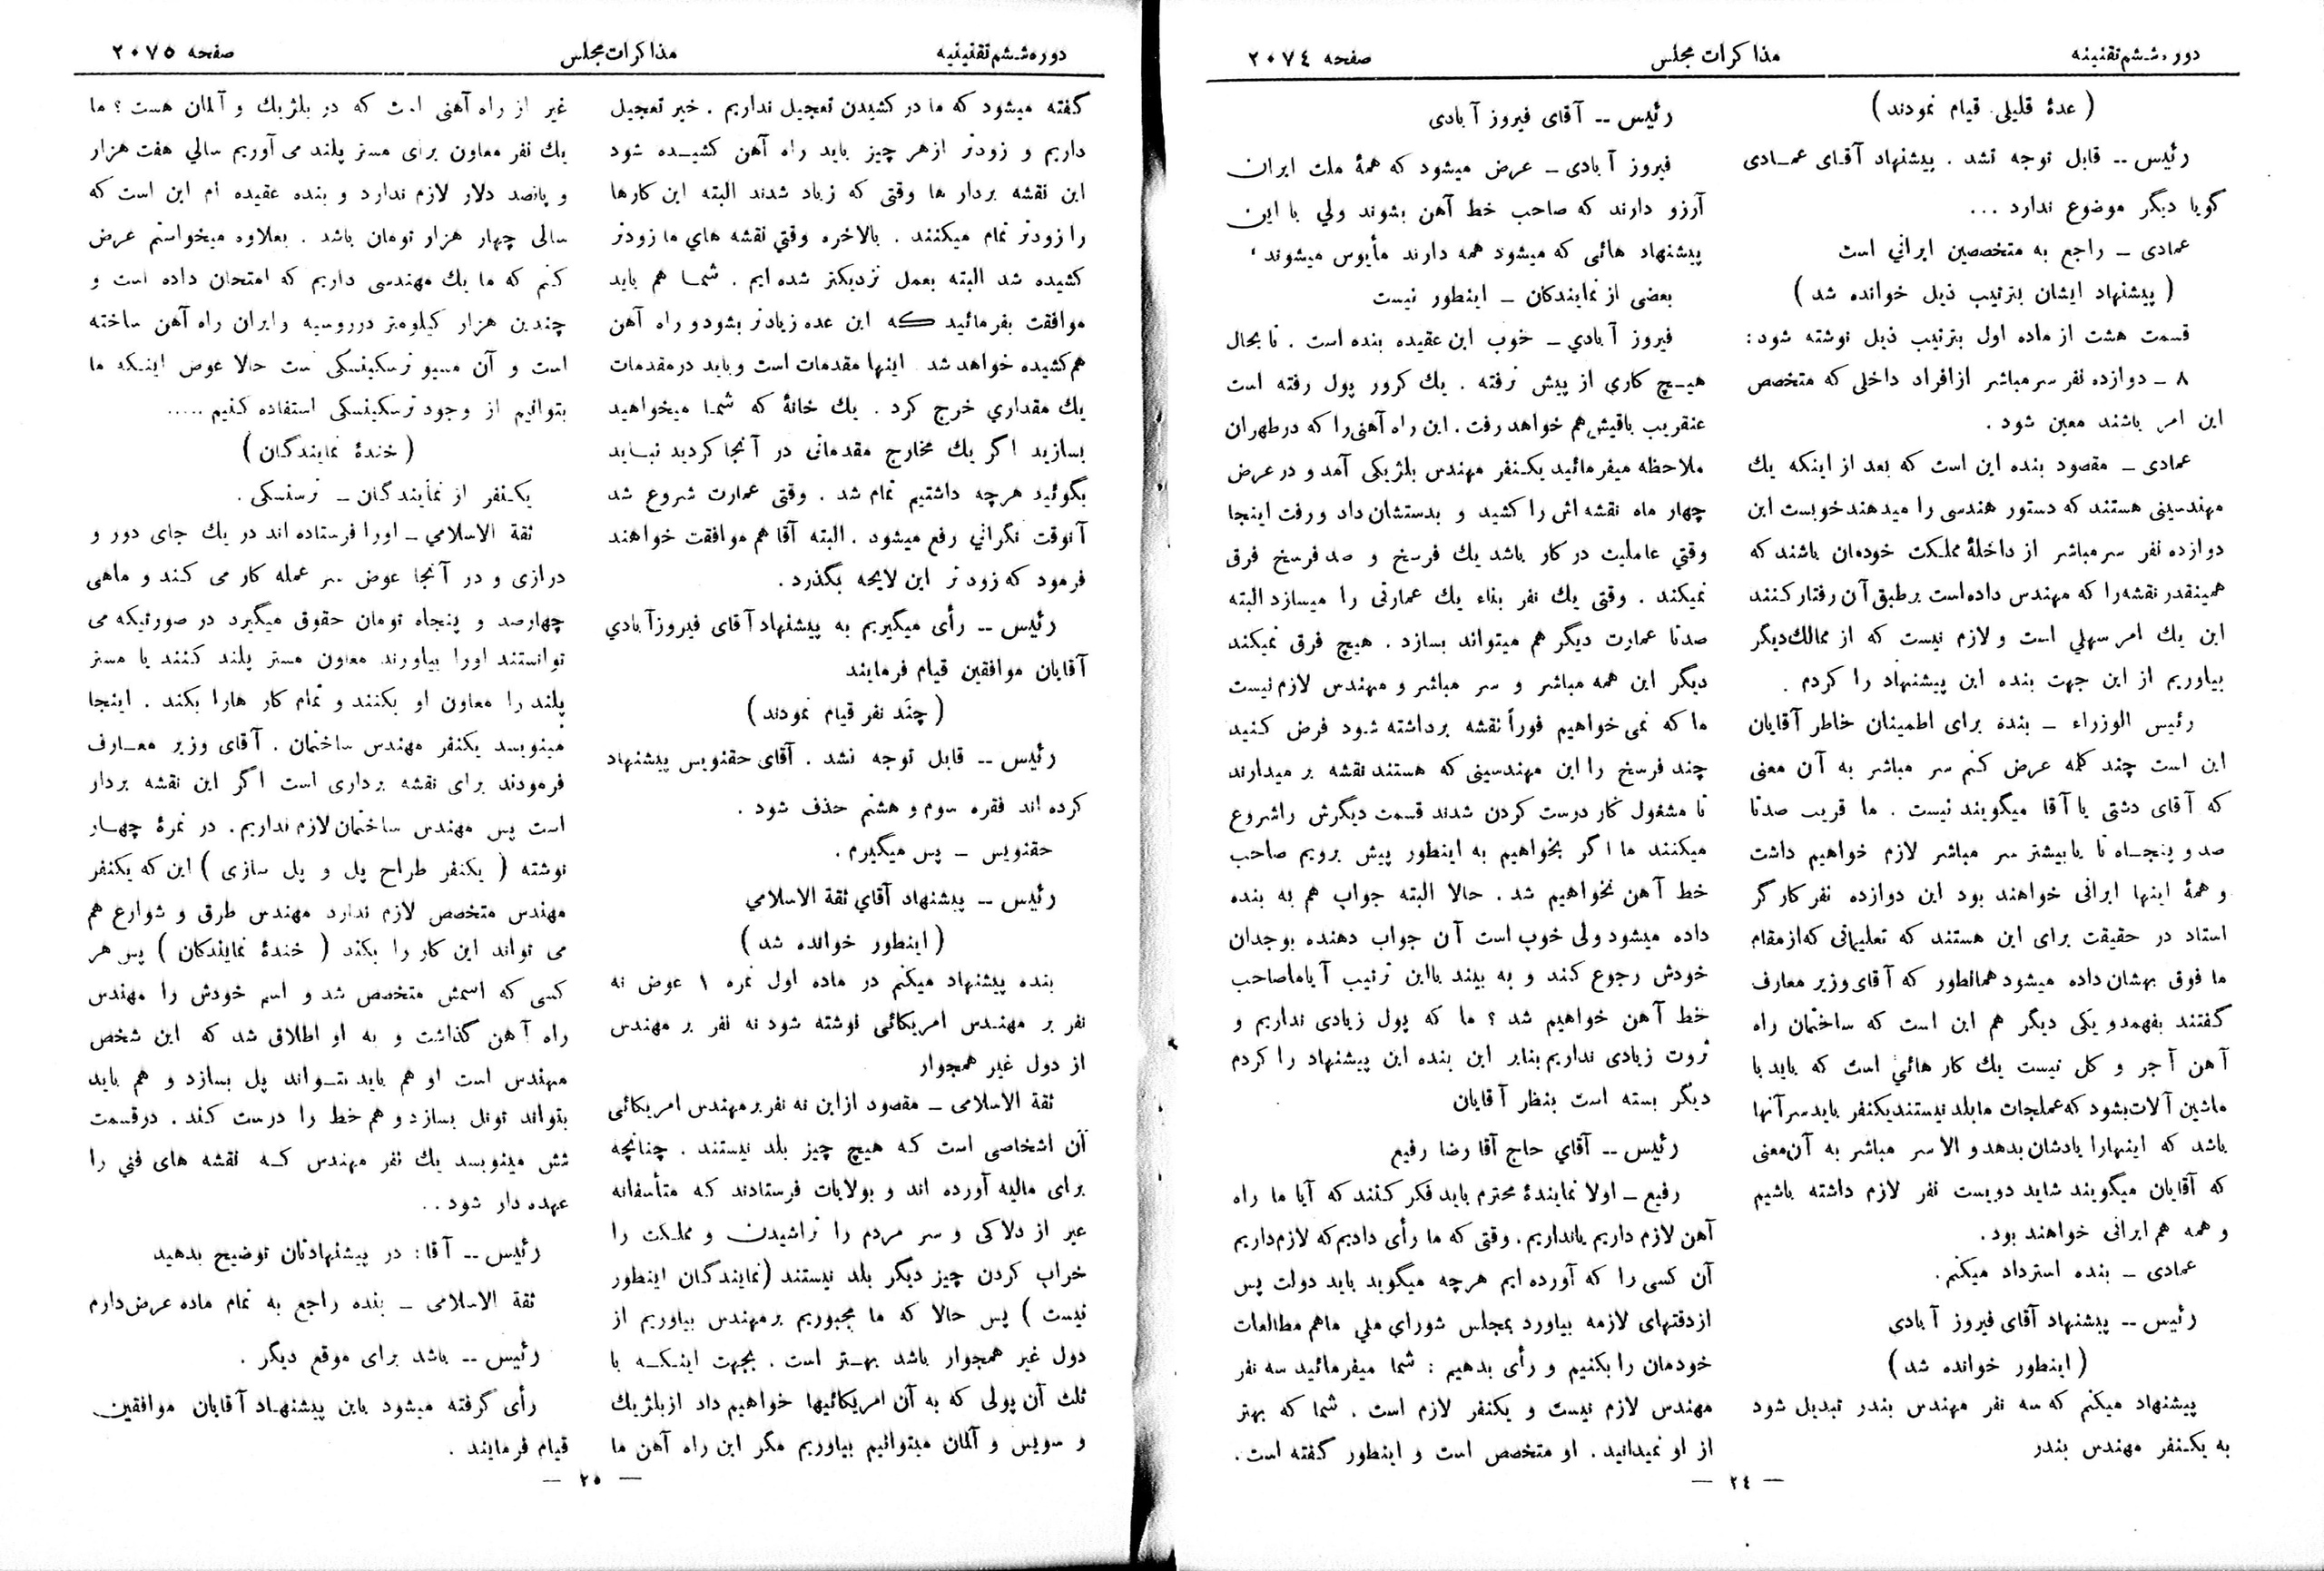 دوره ششم تقنینه
مذاکرات مجلس
صفحه ۲۰۷٤
(عدهٔ قلیلی قیام نمودند)
رئیس -- قابل توجه نشد . پیشنهاد آقای عمادی
گویا دیگر موضوع ندارد ...
عمادی – راجع به متخصصین ایرانی است
(پیشنهاد ایشان بترتیب ذیل خوانده شد)
قسمت هشت از ماده اول بترتیب ذیل نوشته شود:
۸ – دوازده نفر سرمباشر ازافراد داخلی که متخصص
این امر باشند معین شود .
عمادی – مقصود بنده این است که بعد از اینکه یك
مهندسینی هستند که دستور هندسی را میدهند خوبست این
دوازده نفر سرمباشر از داخلهٔ مملکت خودمان باشند که
همینقدر نقشه را که مهندس داده است برطبق آن رفتار کنند
این یك امر سهلی است و لازم نیست که از ممالك دیگر
بیاوریم از این جهت بنده این پیشنهاد را کردم .
رئیس الوزراء – بنده برای اطمینان خاطر آقایان
این است چند کلمه عرض کنم سر مباشر به آن معنی
که آقای دشتی یا آقا میگویند نیست . ما قریب صدتا
صد و پنجاه تا یا بیشتر سر مباشر لازم خواهیم داشت
و همهٔ اینها ایرانی خواهند بود این دوازده نفر کارگر
استاد در حقیقت برای این هستند که تعلیماتی که ازمقام
ما فوق بهشان داده میشود همانطور که آقای وزیر معارف
گفتند بفهمد و یکی دیگر هم این است که ساختمان راه
آهن آجر و گل نیست یك کار هائی است که باید با
ماشین آلات بشود که عملجات ما بلد نیستند یکنفر باید سر آنها
باشد که اینهارا یادشان بدهد و الا سر مباشر به آن معنی
که آقایان میگویند شاید دویست نفر لازم داشته باشیم
و همه هم ایرانی خواهند بود.
عمادی – بنده استرداد میکنم.
رئیس -- پیشنهاد آقای فیروز آبادی
(اینطور خوانده شد)
پیشنهاد میکنم که سه نفر مهندس بندر تبدیل شود
به یکنفر مهندس بندر
رئیس -- آقای فیروز آبادی
فیروز آبادی – عرض میشود که همهٔ ملت ایران
آرزو دارند که صاحب خط آهن بشوند ولی با این
پیشنهاد هائی که میشود همه دارند مأیوس میشوند ،
بعضی از نمایندگان – اینطور نیست
فیروز آبادي – خوب این عقیده بنده است . تا بحال
هیچ کاری از پیش نرفته . یك کرور پول رفته است
عنقریب باقیش هم خواهد رفت . این راه آهنی را که درطهران
ملاحظه میفرمائید یکنفر مهندس بلژیکی آمد و در عرض
چهار ماه نقشه اش را کشید و بدستشان داد و رفت اینجا
وقتی عاملیت در کار باشد یك فرسخ و صد فرسخ فرق
نمیکند . وقتی یك نفر بناء یك عمارتی را میسازد البته
صدتا عمارت دیگر هم میتواند بسازد . هیچ فرق نمیکند
دیگر این همه مباشر و سر مباشر و مهندس لازم نیست
ما که نمی خواهیم فوراً نقشه برداشته شود فرض کنید
چند فرسخ را این مهندسینی که هستند نقشه بر میدارند
تا مشغول کار درست کردن شدند قسمت دیگرش را شروع
میکنند ما اگر بخواهیم به اینطور پیش برویم صاحب
خط آهن نخواهیم شد . حالا البته جواب هم به بنده
داده میشود ولی خوب است آن جواب دهنده بوجدان
خودش رجوع کند و به بیند با این ترتیب آیا ماصاحب
خط آهن خواهیم شد ؟ ما که پول زیادی نداریم و
ثروت زیادی نداریم بنابر این بنده این پیشنهاد را کردم
دیگر بسته است بنظر آقایان
رئیس -- آقاي حاج آقا رضا رفیع
رفیع – اولا نمایندهٔ محترم باید فکر کنند که آیا ما راه
آهن لازم داریم یا نداریم. وقتی که ما رأی دادیم که لازم داریم
آن کسی را که آورده ایم هرچه میگوید باید دولت پس
ازدقتهای لازمه بیاورد بمجلس شورای ملي ماهم مطالعات
خودمان را بکنیم و رأی بدهیم : شما میفرمائید سه نفر
مهندس لازم نیست و یکنفر لازم است . شما که بهتر
از او نمیدانید . او متخصص است و اینطور گفته است .
— ۲٤ —
دوره ششم تقنینیه
مذاکرات مجلس
صفحه ۲۰۷۵
گفته میشود که ما در کشیدن تعجیل نداریم . خیر تعجیل
داریم و زودتر ازهر چیز باید راه آهن کشیده شود
این نقشه بردار ها وقتی که زیاد شدند البته این کارها
را زودتر تمام میکنند . بالاخره وقتي نقشه هاي ما زودتر
کشیده شد البته بعمل نزدیکتر شده ایم . شما هم باید
موافقت بفرمائید که این عده زیادتر بشود و راه آهن
هم کشیده خواهد شد . اینها مقدمات است و باید درمقدمات
یك مقداري خرج کرد . یك خانهٔ که شما میخواهید
بسازید اگر یك مخارج مقدماتی در آنجا کردید نباید
بگوئید هرچه داشتیم تمام شد . وقتی عمارت شروع شد
آنوقت نگراني رفع میشود . البته آقا هم موافقت خواهند
فرمود که زود تر این لایحه بگذرد .
رئیس -- رأی میگیریم به پیشنهاد آقای فیروزآبادي
آقایان موافقین قیام فرمایند
(چند نفر قیام نمودند)
رئیس -- قابل توجه نشد . آقای حقنویس پیشنهاد
کرده اند فقره سوم و هشتم حذف شود .
حقنویس – پس میگیرم .
رئیس -- پیشنهاد آقاي ثقة الاسلامي
(اینطور خوانده شد)
بنده پیشنهاد میکنم در ماده اول نمره ۱ عوض نه
نفر بر مهندس امریکائی نوشته شود نه نفر بر مهندس
از دول غیر همجوار
ثقة الاسلامی – مقصود ازاین نه نفر بر مهندس امریکائی
آن اشخاصی است که هیچ چیز بلد نیستند . چنانچه
برای مالیه آورده اند و بولایات فرستادند که متأسفانه
غیر از دلاکی و سر مردم را تراشیدن و مملکت را
خراب کردن چیز دیگر بلد نیستند (نمایندگان اینطور
نیست) پس حالا که ما مجبوریم بر مهندس بیاوریم از
دول غیر همجوار باشد بهتر است . بجهت اینکه با
ثلث آن پولی که به آن امریکائیها خواهیم داد ازبلژیك
و سویس و آلمان میتوانیم بیاوریم مگر این راه آهن ما
غیر از راه آهنی است که در بلژیك و آلمان هست ؟ ما
یك نفر معاون برای مستر پلند می آوریم سالي هفت هزار
و پانصد دلار لازم ندارد و بنده عقیده ام این است که
سالی چهار هزار تومان باشد . بعلاوه میخواستم عرض
کنم که ما یك مهندسی داریم که امتحان داده است و
چندین هزار کیلومتر درروسیه و ایران راه آهن ساخته
است و آن مسیو ترسکینسکی است حالا عوض اینکه ما
بتوانیم از وجود ترسکینسکی استفاده کنیم .....
(خندهٔ نمایندگان)
یکنفر از نمایندگان – ترسنسکی .
ثقة الاسلامي – اورا فرستاده اند در یك جای دور و
درازی و در آنجا عوض سر عمله کار می کند و ماهی
چهارصد و پنجاه تومان حقوق میگیرد در صورتیکه می
توانستند اورا بیاورند معاون مستر پلند کنند یا مستر
پلند را معاون او بکنند و تمام کار هارا بکند . اینجا
مینویسد یکنفر مهندس ساختمان . آقای وزیر معارف
فرمودند برای نقشه برداری است اگر این نقشه بردار
است پس مهندس ساختمان لازم نداریم . در نمرهٔ چهار
نوشته (یکنفر طراح پل و پل سازی) این که یکنفر
مهندس متخصص لازم ندارد مهندس طرق و شوارع هم
می تواند این کار را بکند (خندهٔ نمایندکان) پس هر
کسی که اسمش متخصص شد و اسم خودش را مهندس
راه آهن گذاشت و به او اطلاق شد که این شخص
مهندس است او هم باید بتواند پل بسازد و هم باید
بتواند تونل بسازد و هم خط را درست کند . درقسمت
شش مینویسد یك نفر مهندس که نقشه های فني را
عهده دار شود ..
رئیس -- آقا : در پیشنهادتان توضیح بدهید
ثقة الاسلامی – بنده راجع به تمام ماده عرض دارم
رئیس -- باشد برای موقع دیگر .
رأی گرفته میشود باین پیشنهاد آقایان موافقین
قیام فرمایند .
— ۲۵ —